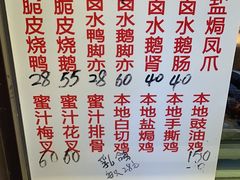 脆皮烧鸭
脆皮烧鹅
卤水鸭脚亦
卤水鹅脚亦
卤水鹅肾
卤水鹅肠
盐焗凤爪
28 55 28 60 40 40
蜜汁梅叉
蜜汁花叉
蜜汁排骨
本地白切鸡
本地盐焗鸡
本地手撕鸡
本地豉油鸡
60 60
150